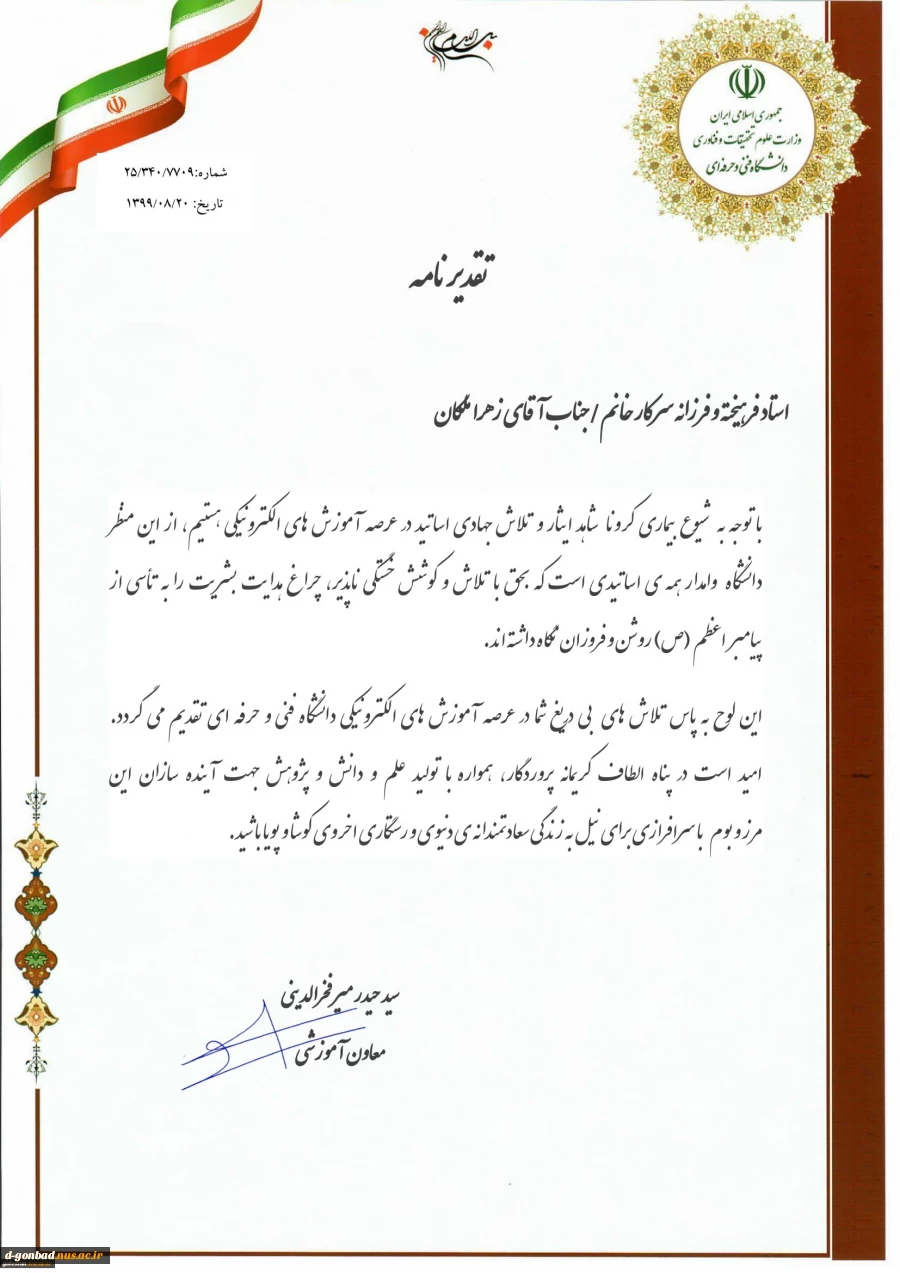 بسم الله الرحمن الرحیم
جمهوری اسلامی ایران
وزارت علوم تحقیقات و فناوری
دانشگاه فنی و حرفه ای
شماره:۲۵/۳۴۰/۷۷۰۹
تاریخ: ۱۳۹۹/۰۸/۲۰
تقدیرنامه
استاد فرهیخته و فرزانه سرکار خانم / جناب آقای زهرا ملکان
با توجه به شیوع بیماری کرونا شاهد ایثار و تلاش جهادی اساتید در عرصه آموزش های الکترونیکی هستیم، از این منظر
دانشگاه وامدار همه ی اساتیدی است که بحق با تلاش و کوشش خستگی ناپذیر، چراغ هدایت بشریت را به تأسی از
پیامبر اعظم (ص) روشن و فروزان نگاه داشته اند.
این لوح به پاس تلاش های بی دریغ شما در عرصه آموزش های الکترونیکی دانشگاه فنی و حرفه ای تقدیم می گردد.
امید است در پناه الطاف کریمانه پروردگار، همواره با تولید علم و دانش و پژوهش جهت آینده سازان این
مرز و بوم با سرافرازی برای نیل به زندگی سعادتمندانه ی دنیوی و رستگاری اخروی کوشا و پویا باشید.
سید حیدر میرفخرالدینی
معاون آموزشی
d-gonbad.nus.ac.ir